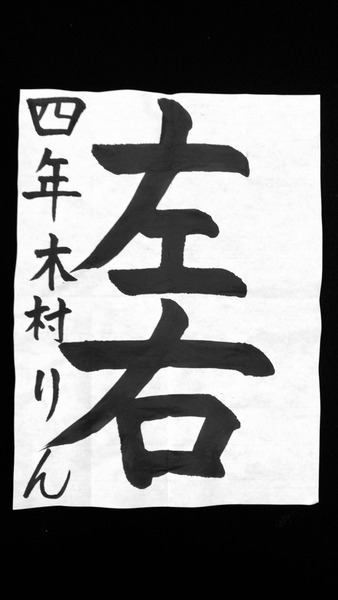 左右
四年木村りん